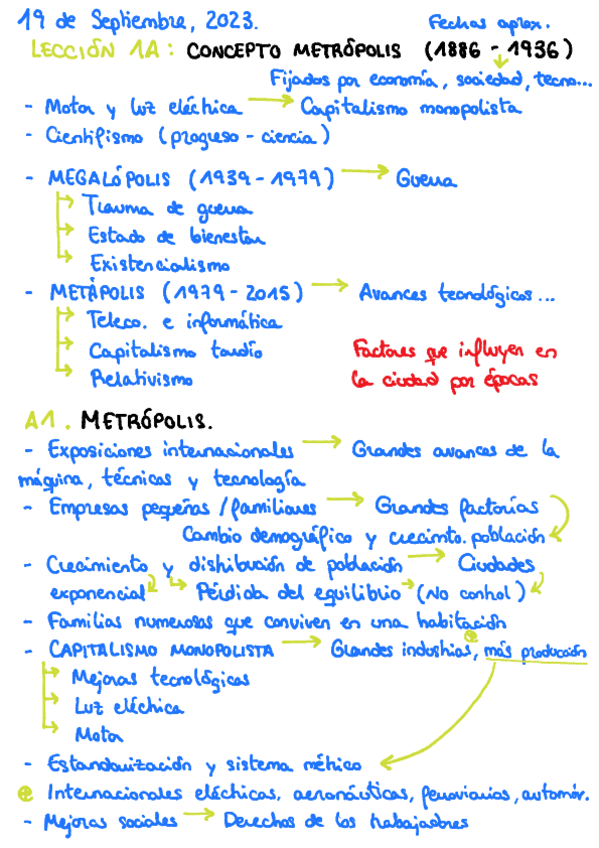 19 de Septiembre, 2023. Fechas aprox.
LECCIÓN 1A: CONCEPTO METRÓPOLIS (1886 - 1936)
Fijados por economía, sociedad, tecno...
- Motor y luz eléctrica → Capitalismo monopolista
- Cientifismo (progreso - ciencia)
- MEGALÓPOLIS (1939 - 1979) → Guerra
→ Trauma de guerra
→ Estado de bienestar
→ Existencialismo
- METÁPOLIS (1979 - 2015) → Avances tecnológicos...
→ Teleco. e informática
→ Capitalismo tardío Factores que influyen en
→ Relativismo la ciudad por épocas
A1. METRÓPOLIS.
- Exposiciones internacionales → Grandes avances de la
máquina, técnicas y tecnología
- Empresas pequeñas / familiares → Grandes factorías
Cambio demográfico y crecimto. población
- Crecimiento y distribución de población → Ciudades
exponencial → Pérdida del equilibrio → (No control)
- Familias numerosas que conviven en una habitación
- CAPITALISMO MONOPOLISTA → Grandes industrias, más producción
→ Mejoras tecnológicas
→ Luz eléctrica
→ Motor
- Estandarización y sistema métrico
⊕ Internacionales eléctricas, aeronáuticas, ferroviarias, automóv.
- Mejoras sociales → Derechos de los trabajadores